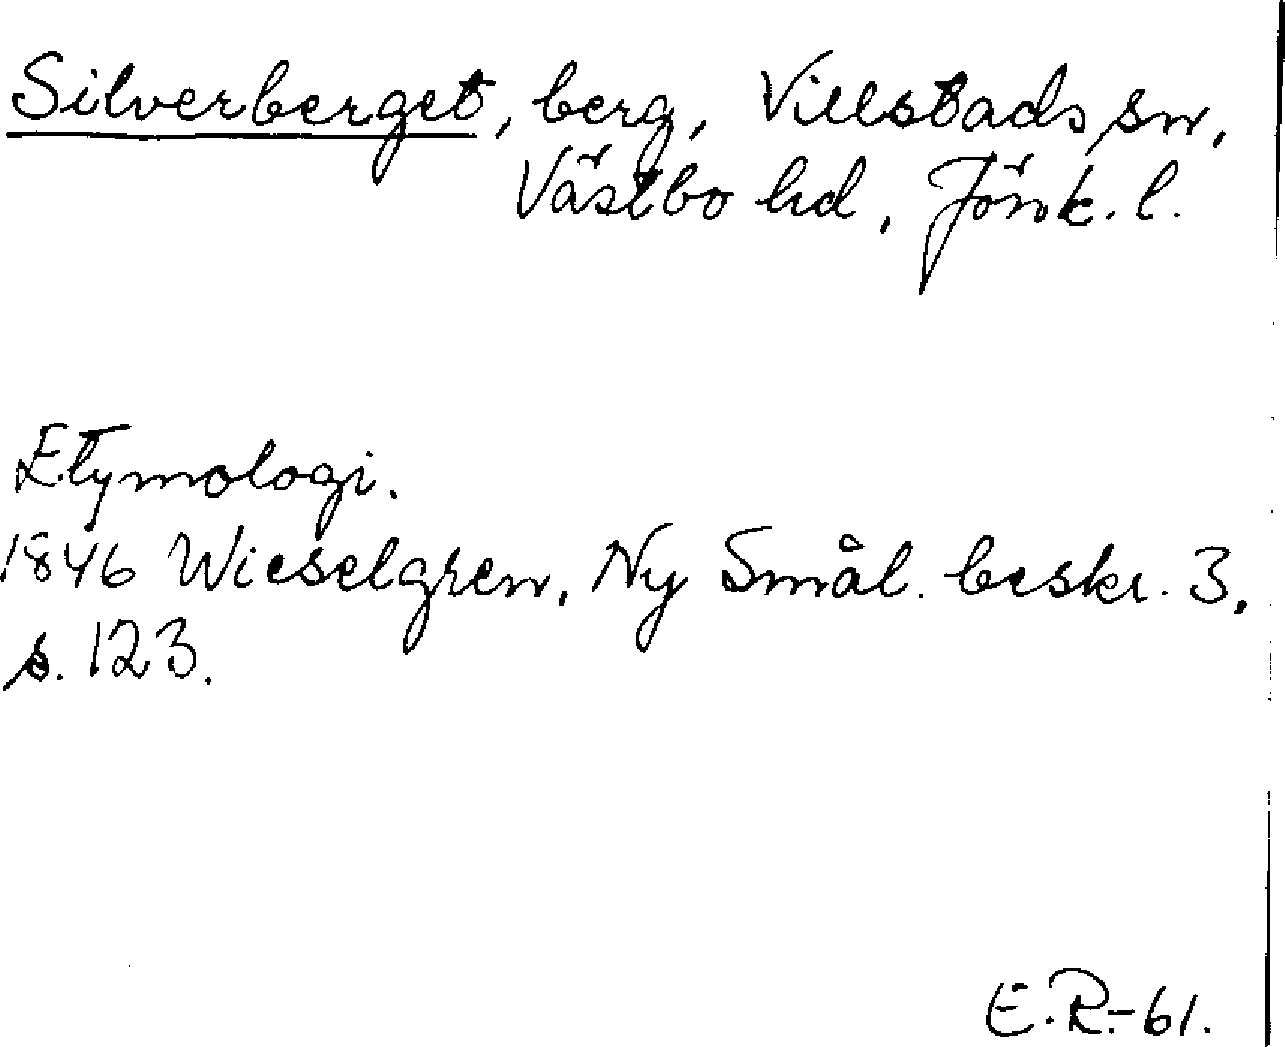 Silverberget, berg, Villstads sn,
Västbo hd, Jönk. l.
Etymologi.
1846 Wieselgren, Ny Smål. beskr. 3,
s. 123.
E.R.-61.